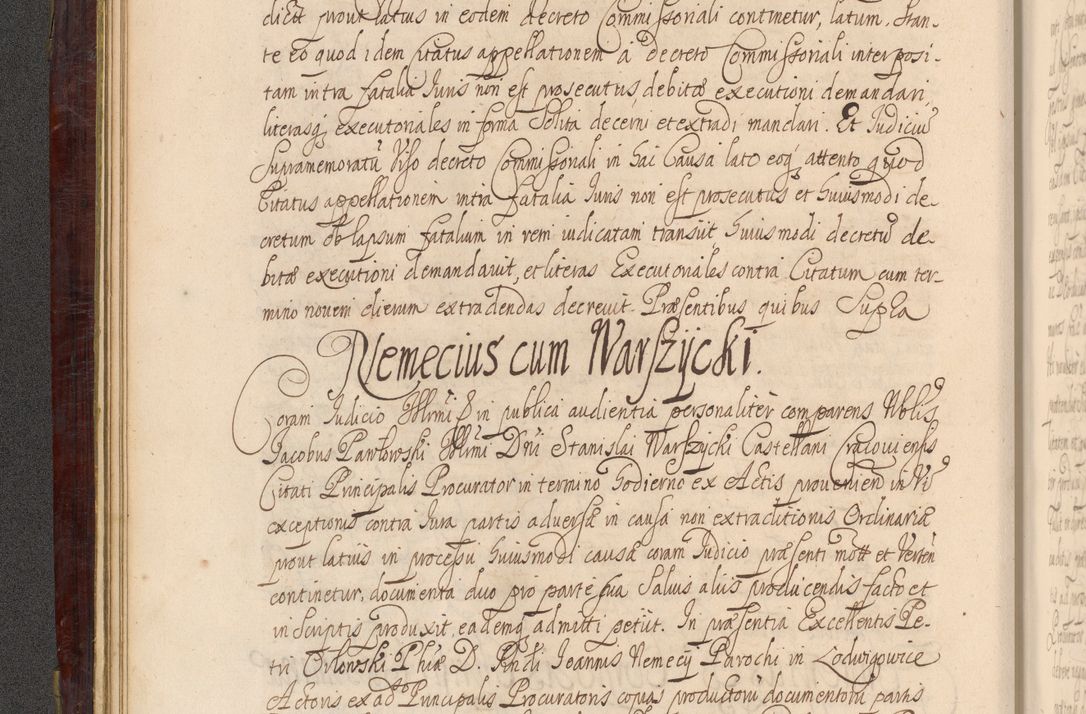 dict prout latius in eodem decreto Commissoriali continetur, latum. Stan-
te eo quod idem Citatus appellationem a decreto Commissoriali interposi-
tam intra fatalia Iuris non est prosecutus, debitæ executioni demandari,
literasq executoriales in forma Solita decerni et extradi mandari. Et Iudiciũ
Supramemoratũ Viso decreto Commissoriali in hac Causa lato eoq attento quod
Citatus appellationem intra fatalia Iuris non est prosecutus et huiusmodi de-
cretum ob lapsum fatalium in rem iudicatam transiit, huiusmodi decretũ de-
bitæ executioni demandavit, et literas Executoriales contra Citatum cum ter-
mino novem dierum extradendas decrevit. Præsentibus quibus Supra
Nemecius cum Warszycki.
Coram Iudicio Illrmi D in publica audientia personaliter comparens Nblis
Jacobus Pawłowski Illrmi Dni Stanislai Warszycki Castellani Cracoviensis
Citati Principalis Procurator in termino hodierno ex Actis provenien in Vi
exceptionis contra Iura partis adversæ in causa non extraditionis Ordinariæ
prout latius in processu huiusmodi causæ coram Iudicio præsenti mott et Verten
continetur, documenta duo pro parte sua Salvis aliis producendis facto et
in Scriptis produxit, eademq admitti petiit. In præsentia Excellentis Pe-
tri Orlowski Phiæ D. Rndi Ioannis Nemecÿ Parochi in Lodwigowice
Actoris ex ad Principalis Procuratoris copias productorũ documentorũ partis